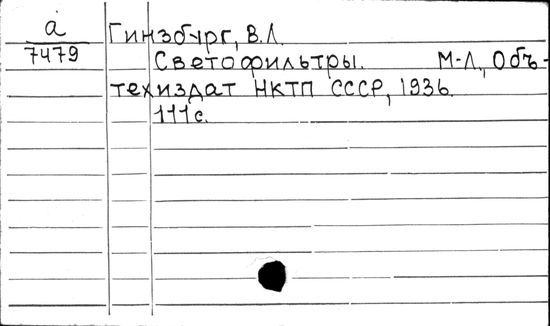 а
7479
Гинзбург, В.Л.
Светофильтры. М-Л., Объ-
техиздат НКТП СССР, 1936.
111 с.